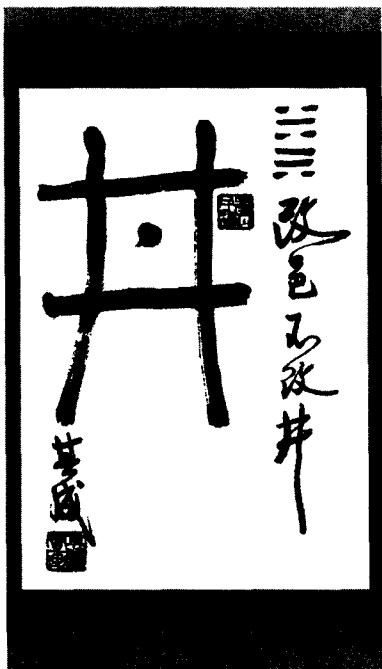 改邑不改井
丼